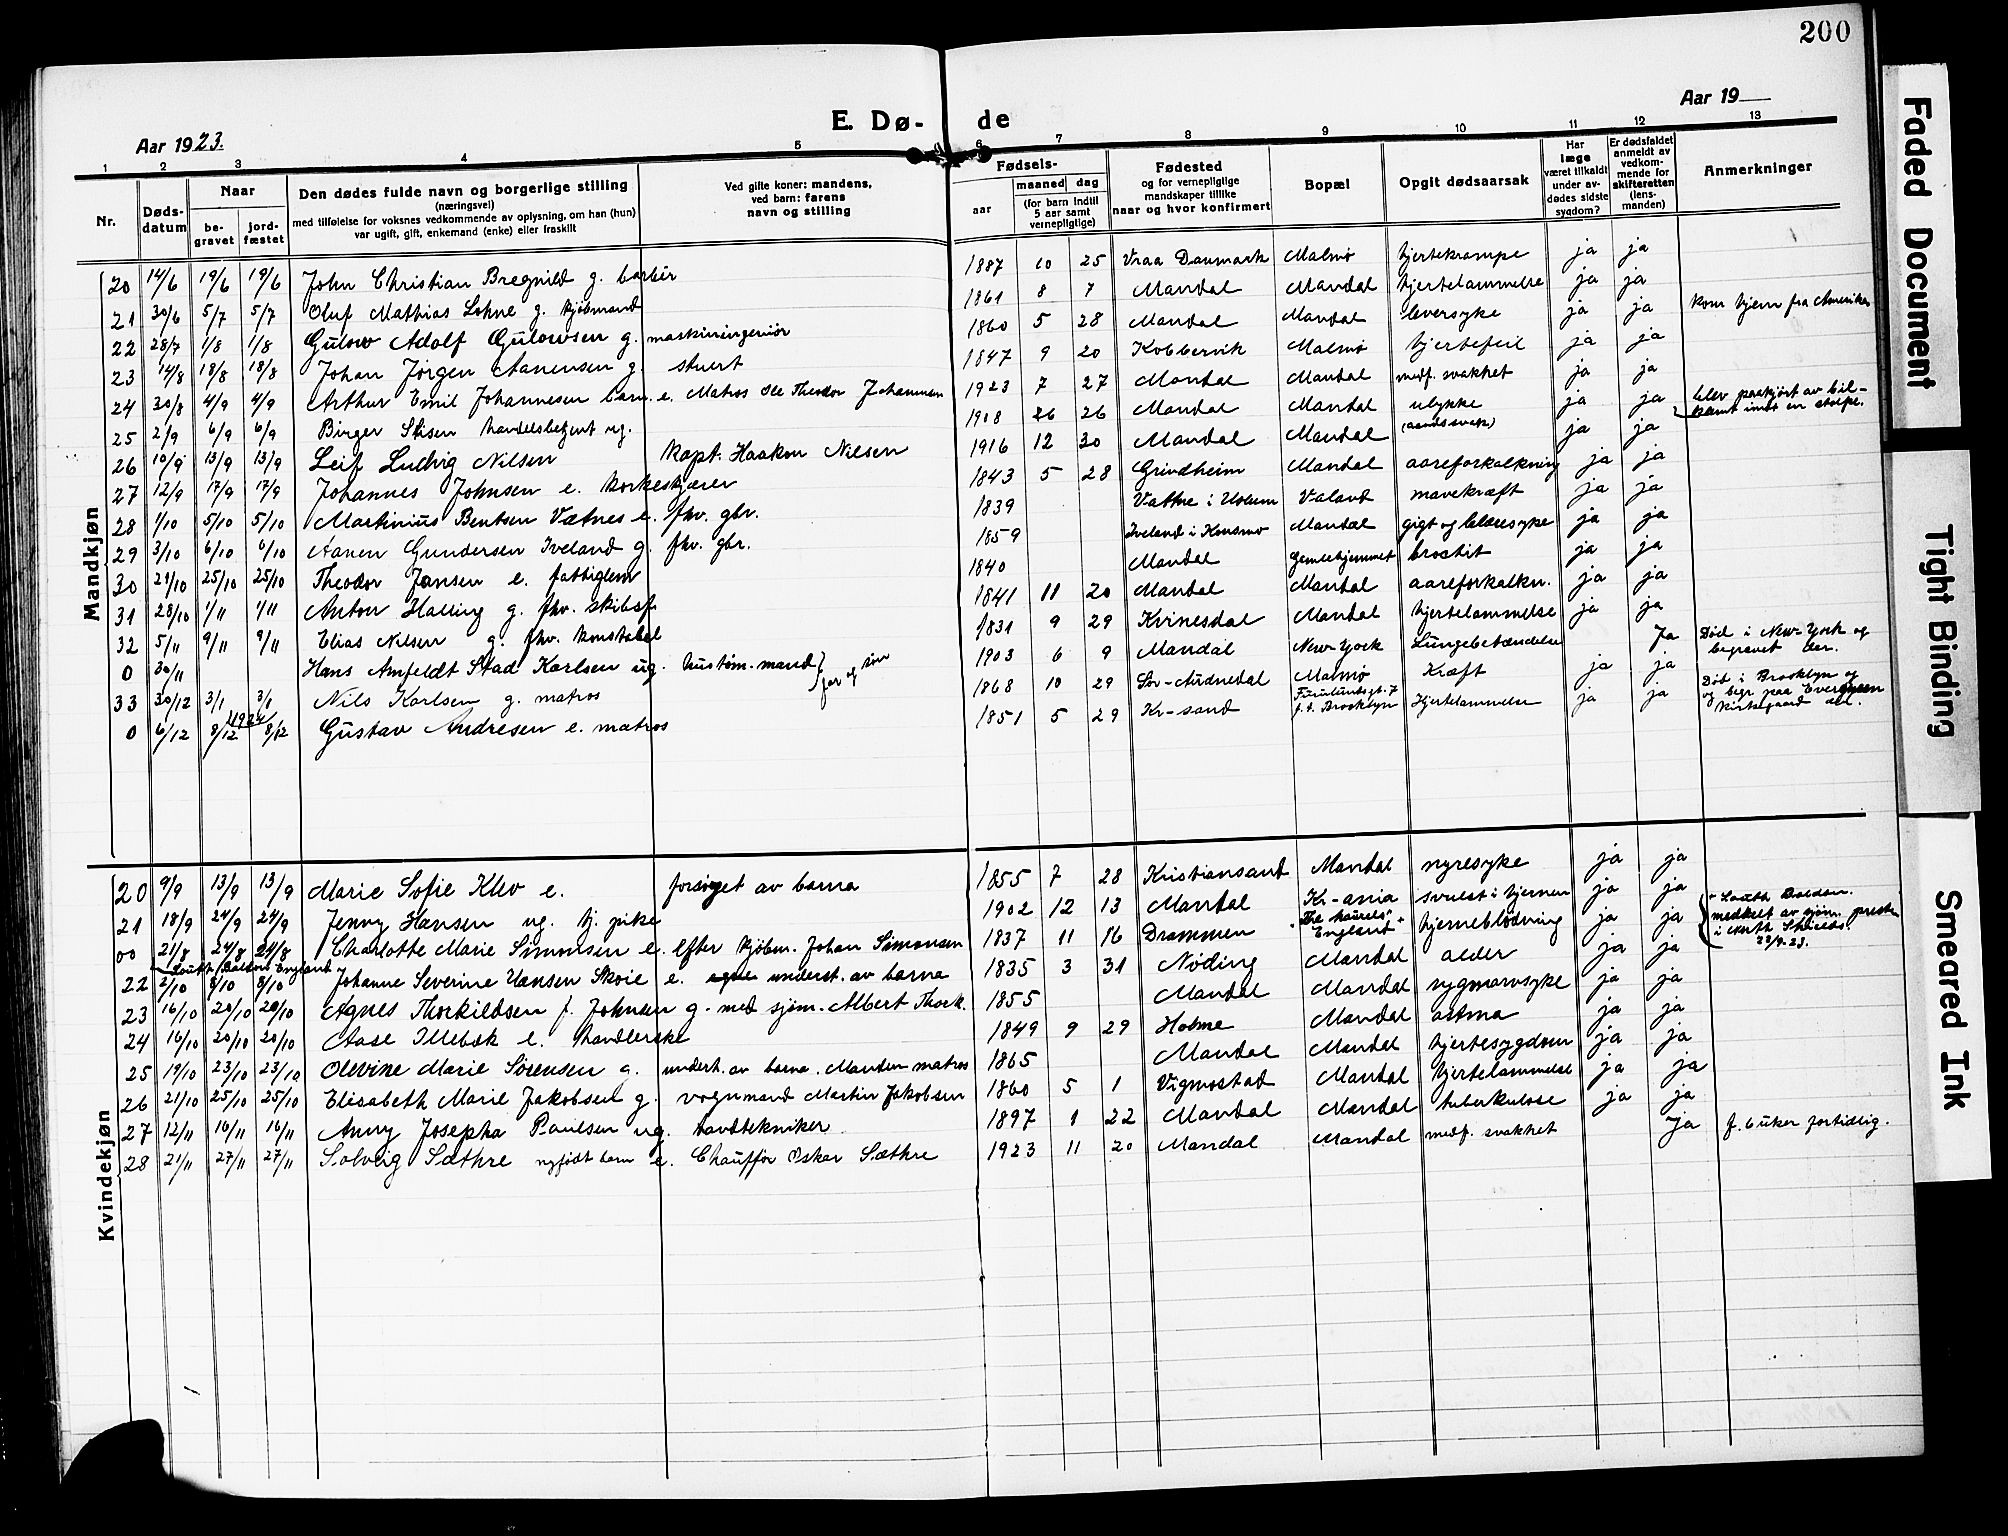 200
Aar 1923.
E. Dø- de
Aar 19
1 2 3 4 5 6 7 8 9 10 11 12 13
Nr.
Døds-datum
Naar
be-gravet
jord-fæstet
Den dødes fulde navn og borgerlige stilling
(næringsvei)
med tilføielse for voksnes vedkommende av oplysning, om han (hun)
var ugift, gift, enkemand (enke) eller fraskilt
Ved gifte koner: mandens,
ved barn: farens
navn og stilling
Fødsels-
aar
maaned dag
(for barn indtil
5 aar samt
vernepligtige)
Fødested
og for vernepligtige
mandskaper tillike
naar og hvor konfirmert
Bopæl
Opgit dødsaarsak
Har
læge
været tilkaldt
under av-
dødes sidste
sygdom?
Er dødsfaldet
anmeldt av
vedkom-
mende for
skifteretten
(lens
manden)
Anmerkninger
Mandkjøn
20 14/6 19/6 19/6 John Christian Bregnild g. barbér 1887 10 25 Vraa Danmark Malmø hjertekrampe ja ja
21 30/6 5/7 5/7 Oluf Mathias Lohne g. kjøbmand 1861 8 7 Mandal Mandal hjertelammelse ja ja
22 28/7 1/8 1/8 Gulow Adolf Gulowsen g. maskiningeniør 1860 5 28 Mandal Mandal leversyke ja ja kom hjem fra Amerika
23 14/8 18/8 18/8 Johan Jørgen Aanensen g. stuert 1847 9 20 Kobbervik Malmø hjertefeil ja ja
24 30/8 4/9 4/9 Arthur Emil Johannesen barn. e. Matros Ole Theodor Johannesen 1923 7 27 Mandal Mandal medf. svakhet ja ja
25 2/9 6/9 6/9 Birger Stisen handelsbetjent ug. 1908 26 26 Mandal Mandal ulykke ja ja blev paakjørt av bil-
klemt imot en stolpe.
26 10/9 13/9 13/9 Leif Ludvig Nilsen kapt. Haakon Nilsen 1916 12 30 Mandal Mandal (aandssvak) ja ja
27 12/9 17/9 17/9 Johannes Johnsen e. korkeskjærer 1843 5 28 Grindheim Mandal aareforkalkning ja ja
28 1/10 5/10 5/10 Martinius Bentsen Vatnes e. fhv. gbr. 1839 Vatne i Holum Valand mavekræft ja ja
29 3/10 6/10 6/10 Aanen Gundersen Iveland g. fhv. gbr. 1859 Iveland i Konsmo Mandal gigt og blæresyke ja ja
30 21/10 25/10 25/10 Theodor Jansen e. fattiglem 1840 Mandal Gamlehjemmet ja ja
31 28/10 1/11 1/11 Anton Halling g. fhv. skibsf. 1841 11 20 Mandal Mandal aareforkalkn. ja ja
32 5/11 9/11 9/11 Elias Nilsen g. fhv. konstabel 1831 9 29 Kvinesdal Mandal hjertelammelse ja ja
0 30/11 Hans Amfeldt Stad Karlsen ug. 1903 6 9 Mandal New-York Lungebetændelse Ja Død i New-York og
begravet der.
33 30/12 3/1 3/1 1924 Nils Karlsen g. matros 1868 10 29 Sør-Audnedal Malmø Kræft ja ja
0 6/12 8/12 8/12 Gustav Andresen e. matros 1851 5 29 Kr-sand f. t. Brooklyn Hjertelammelse ja ja Død i Brooklyn og
og begr paa Evergreen
kirkegaard der.
Kvindekjøn
20 9/9 13/9 13/9 Marie Sofie Klev e. forsørget av barna 1855 7 28 Kristiansand Mandal nyresyke ja ja
21 18/9 24/9 24/9 Jenny Hansen ug. tj. pike 1902 12 13 Mandal Kr-ania svulst i hjernen ja ja
00 21/8 24/8 24/8 Charlotte Marie Simonsen e. efter kjøbm. Johan Simonsen 1837 11 16 Drammen England hjerneblødning ja ja South Boldon.
meddelt av sjøm. prest
i North Shields.
22 2/10 8/10 8/10 Johanne Severine Hansen Skoie e. underst. av barna 1835 3 31 Nøding Mandal alder ja ja
23 16/10 20/10 20/10 Agnes Thorkildsen f. Johnsen g. med sjøm. Albert Thork. 1855 Mandal Mandal rygmarvsyke ja ja
24 16/10 20/10 20/10 Aase Illebæk e. handlerske 1849 9 29 Holme Mandal astma ja ja
25 19/10 23/10 23/10 Olevine Marie Sørensen g. undert. av barna. Manden matros 1865 Mandal Mandal hjertesygdom ja ja
26 21/10 25/10 25/10 Elisabeth Marie Jakobsen g. vognmand Martin Jakobsen 1860 5 1 Vigmostad Mandal hjertelammelse ja ja
27 12/11 16/11 16/11 Anny Josepha Paulsen ug. tandtekniker 1897 1 22 Mandal Mandal tuberkulose ja ja
28 21/11 27/11 27/11 Solveig Sæthre nyfødt barn e. Chauffør Oskar Sæthre 1923 11 20 Mandal Mandal medf. svakhet Ja f. 6 uker fortidlig.
Faded Document
Tight Binding
Smeared Ink